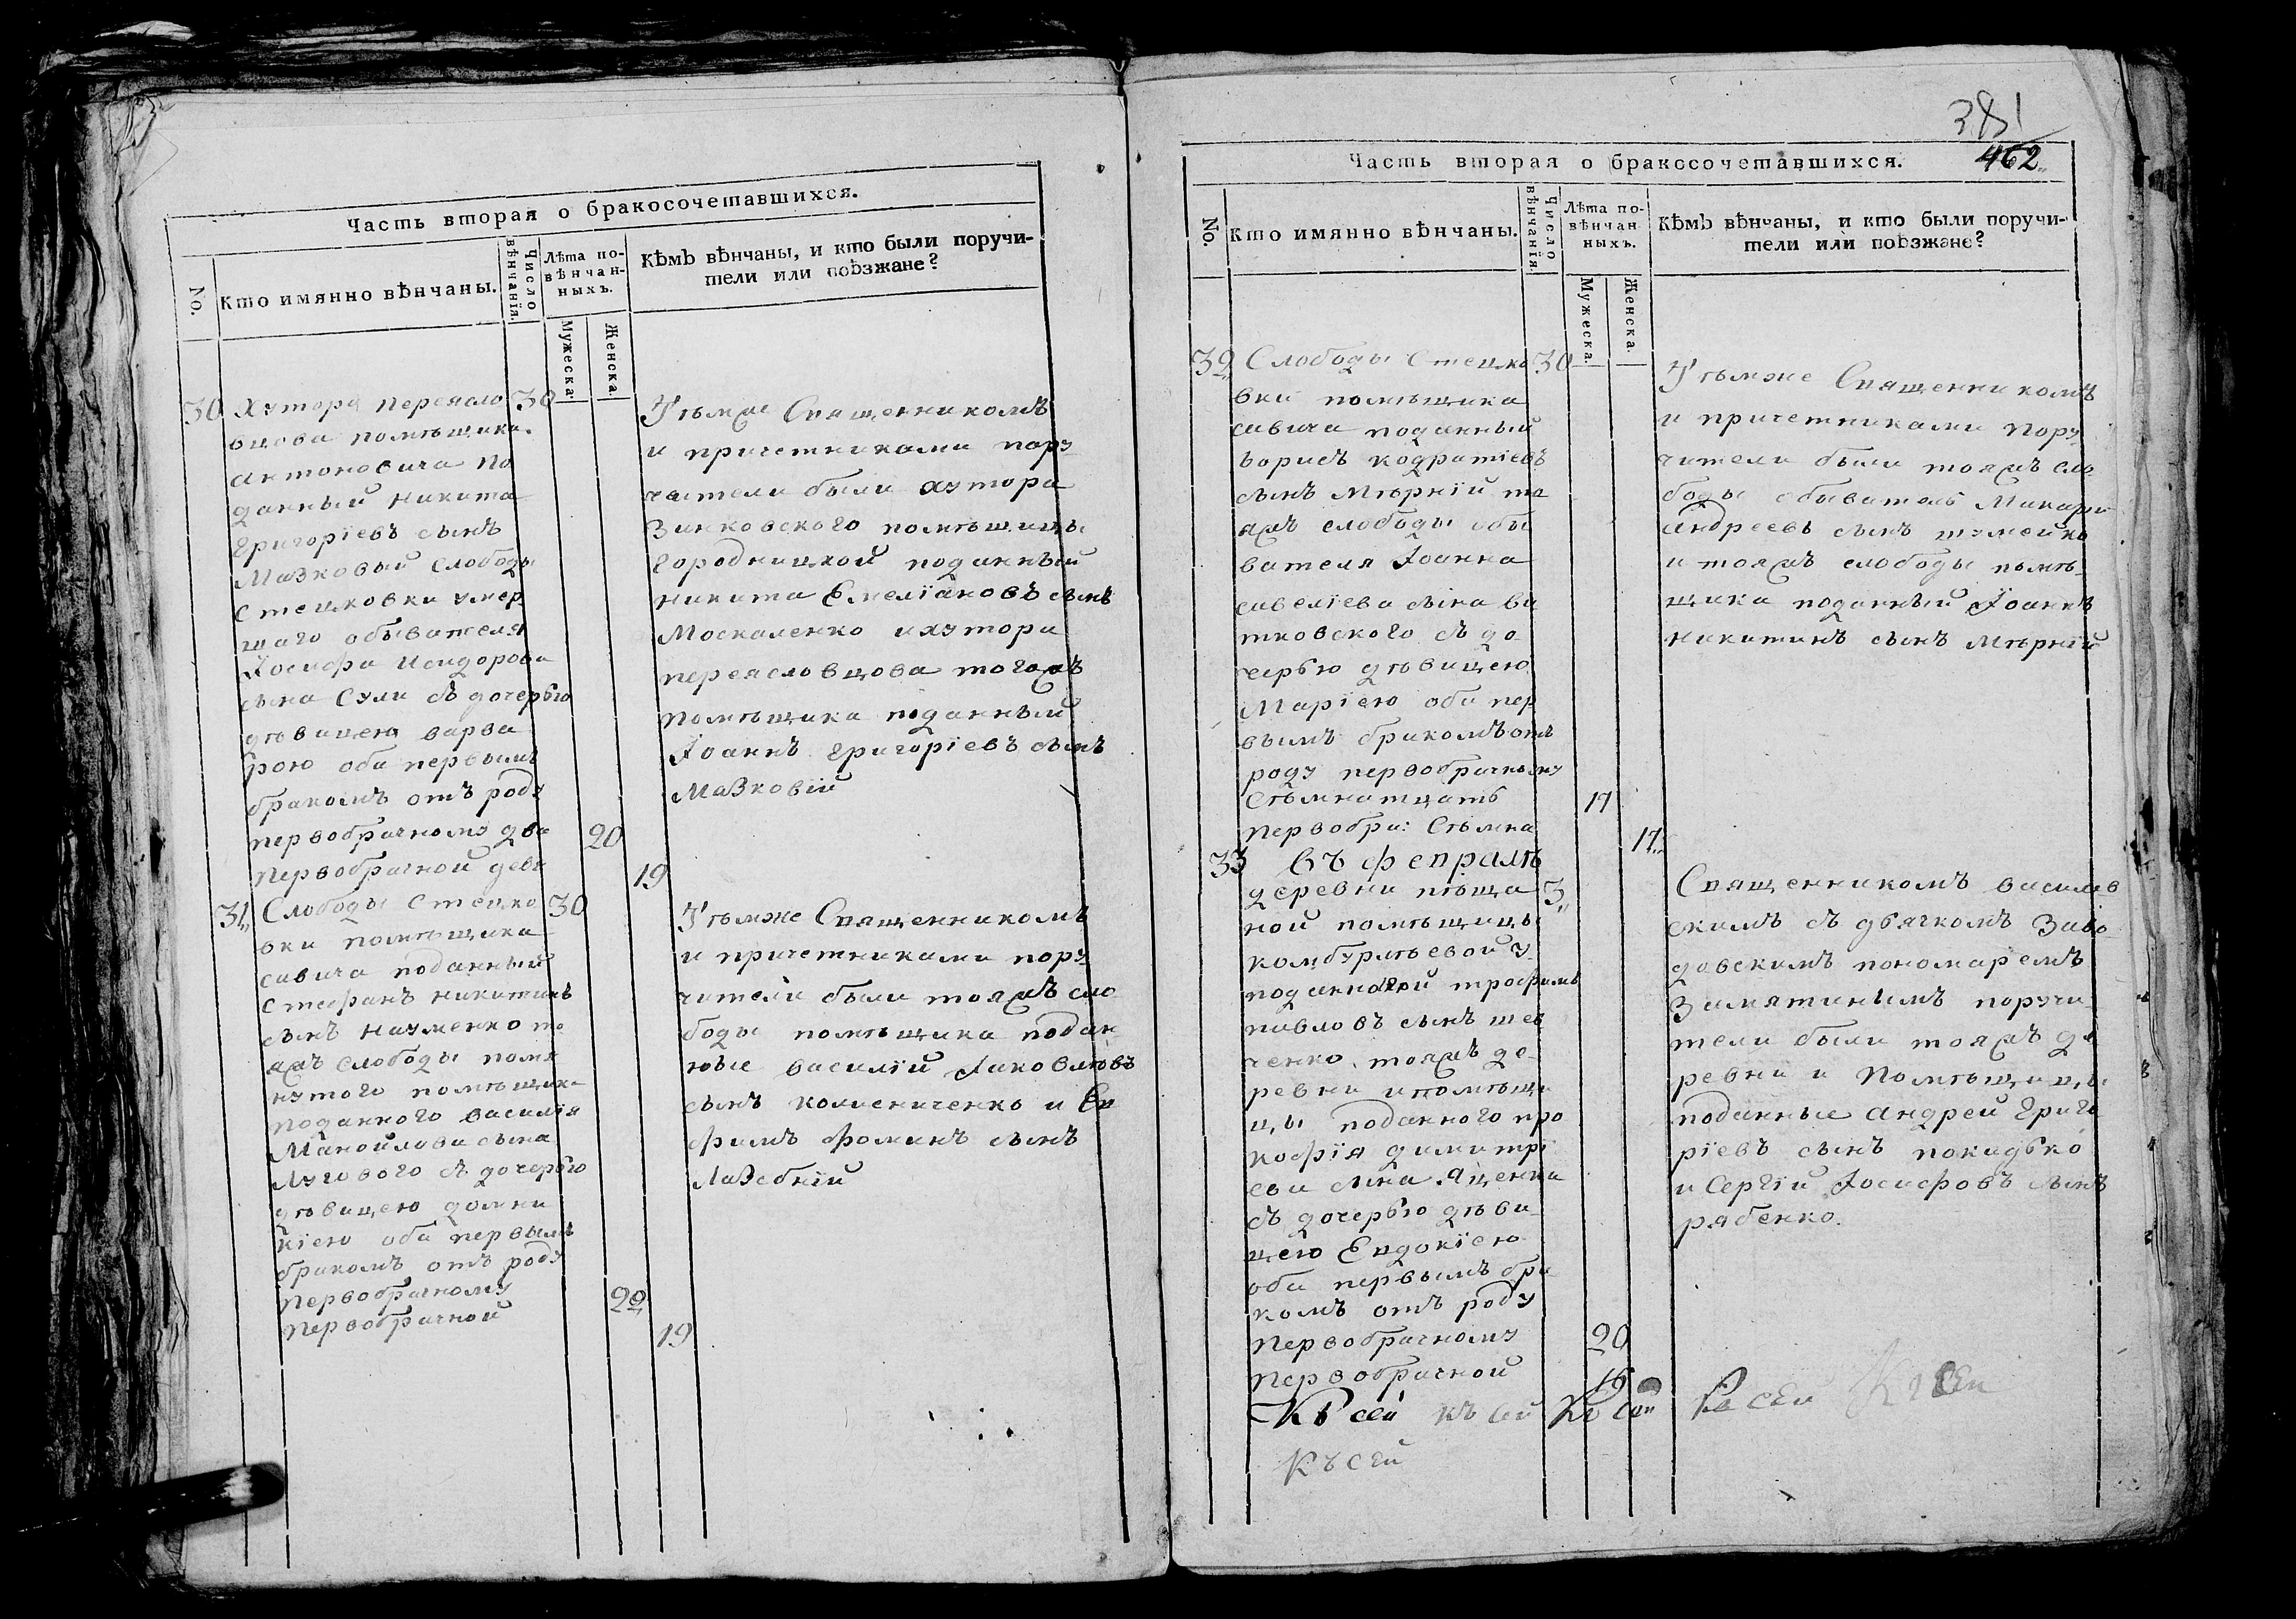 Часть вторая о бракосочетавшихся.
No.
Кто имянно вѣнчаны.
Число вѣнчанія.
Лѣта по-
вѣнчан-
ныхъ.
Мужеска.
Женска.
Кѣмъ вѣнчаны, и кто были поручи-
тели или поѣзжане?
30 Хутора переясло 30
вцова помѣщика
антоновича по
данный никита
григоріевъ сынъ
Мазковый Слободы
Стецковки умер
шаго обывателя
Іосифа Исидорова
сына Сули съ дочерью
дѣвицею варва
рою оба первымъ
бракомъ отъ роду
первобрачному два 20
первобрачной девя 19
Тѣмже Священникомъ
и причетниками пору
чители были хутора
Зинковского помѣщицы
городницкой поданный
никита Емеліановъ сынъ
Москаленко и хутора
переясловцова тогожъ
помѣщика поданный
Іоаннъ григоріевъ сынъ
Мазковій
31, Слободы Стецко 30
вки помѣщика
савича поданный
Стефанъ никитинъ
сынъ науменко то
яжъ слободы помя
нутого помѣщика
поданного василія
Манойлова сына
Лугового съ дочерью
дѣвицею домни
кіею оба первымъ
бракомъ отъ роду
первобрачному 20
первобрачной 19
Тѣмже Священникомъ
и причетниками пору
чители были тояжъ сло
боды помѣщика подан
ные василій Іаковлевъ
сынъ и Ев
фимъ фоминъ сынъ
Лазебній
381
462
Часть вторая о бракосочетавшихся.
No.
Кто имянно вѣнчаны.
Число вѣнчанія.
Лѣта по-
вѣнчан-
ныхъ.
Мужеска.
Женска.
Кѣмъ вѣнчаны, и кто были поручи-
тели или поѣзжане?
32 Слободы Стецко 30
вки помѣщика
савича поданный
борисъ кодратіевъ
сынъ Мѣрній то
яжъ слободы обы
вателя Іоанна
савеліева сына ва
тковского съ до
черью дѣвицею
Маріею оба пер
вымъ бракомъ отъ
роду первобрачному
Сѣмнатцать 17
первобра: Сѣмна 17
Тѣмже Священникомъ
и причетниками пору
чители были тояжъ сло
боды обыватель Макари
андреевъ сынъ шумейко
и тояжъ слободы помѣ
щика поданный Іоаннъ
никитинъ сынъ Мѣрній
33 въ февралѣ
деревни пѣща 3
ной помѣщицы
комбурлѣевой
трофимъ
павловъ сынъ шев
ченко тояжъ де
ревни и помѣщи
цы поданного про
кофія димитрі
ева сына Яценка
съ дочерью дѣви
цею Евдокіею
оба первымъ бра
комъ отъ роду
первобрачному 20
первобрачной 19
Священникомъ василев
скимъ съ дьячкомъ Заво
довскимъ пономаремъ
Замятинымъ поручи
тели были тояжъ де
ревни и помѣщицы
поданные андрей григо
ріевъ сынъ покидько
и Сергій Іосифовъ сынъ
рябенко.
Къ сей къ сей Къ сей Къ сей Къ сей
Къ сей